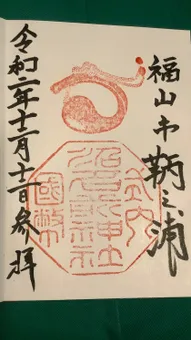 福山市鞆之浦
式内
沼名前神社
國幣
令和二年十二月十二日参拝